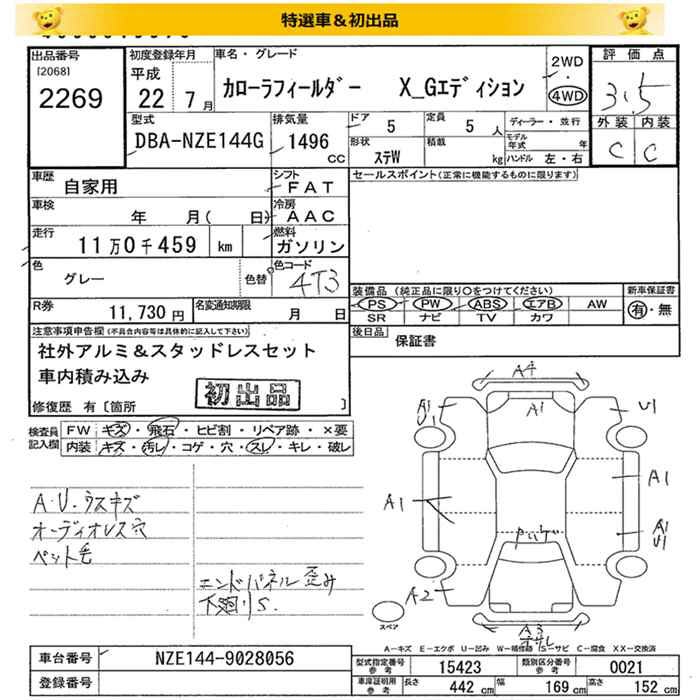 特選車&初出品
出品番号 [2068] 2269
初度登録年月 平成 22 年 7月
車名・グレード カローラフィールダー X_Gエディション
2WD・4WD
評価点 3.5
外装 C 内装 C
型式 DBA-NZE144G
排気量 1496 CC
ドア 5
定員 5 人
形状 ステW
積載 kg
ディーラー・並行
モデル年式 年
ハンドル 左・右
車歴 自家用
シフト FAT
セールスポイント(正常に機能するものに限ります)
車検 年 月( 日)
冷房 AAC
走行 11万0千459 km
燃料 ガソリン
色 グレー
色替
色コード 4T3
R券 11,730 円
名変通知期限 月 日
装備品(純正品に限り○をつけてください)
新車保証書
PS PW ABS エアB AW
有・無
SR ナビ TV カワ
注意事項申告欄(不具合内容等は具体的に記入して下さい)
後日品 保証書
社外アルミ&スタッドレスセット
車内積み込み
初出品
修復歴 有[箇所 ]
検査員記入欄
FW キズ・飛石・ヒビ割・リペア跡・×要
内装 キズ・汚レ・コゲ・穴・スレ・キレ・破レ
A4
A1
U1
A1
A1
A1
U1
A2
A3
スペア
A・U.ウスキズ
オーディオレス穴
ペット毛
エンドパネル歪み
下廻りS.
A－キズ E－エクボ U－凹み W－補修跡 S－サビ C－腐食 XX－交換済
車台番号 NZE144-9028056
登録番号
型式指定番号 参考 15423
類別区分番号 参考 0021
車庫証明用 参考 長さ 442 cm 幅 169 cm 高さ 152 cm